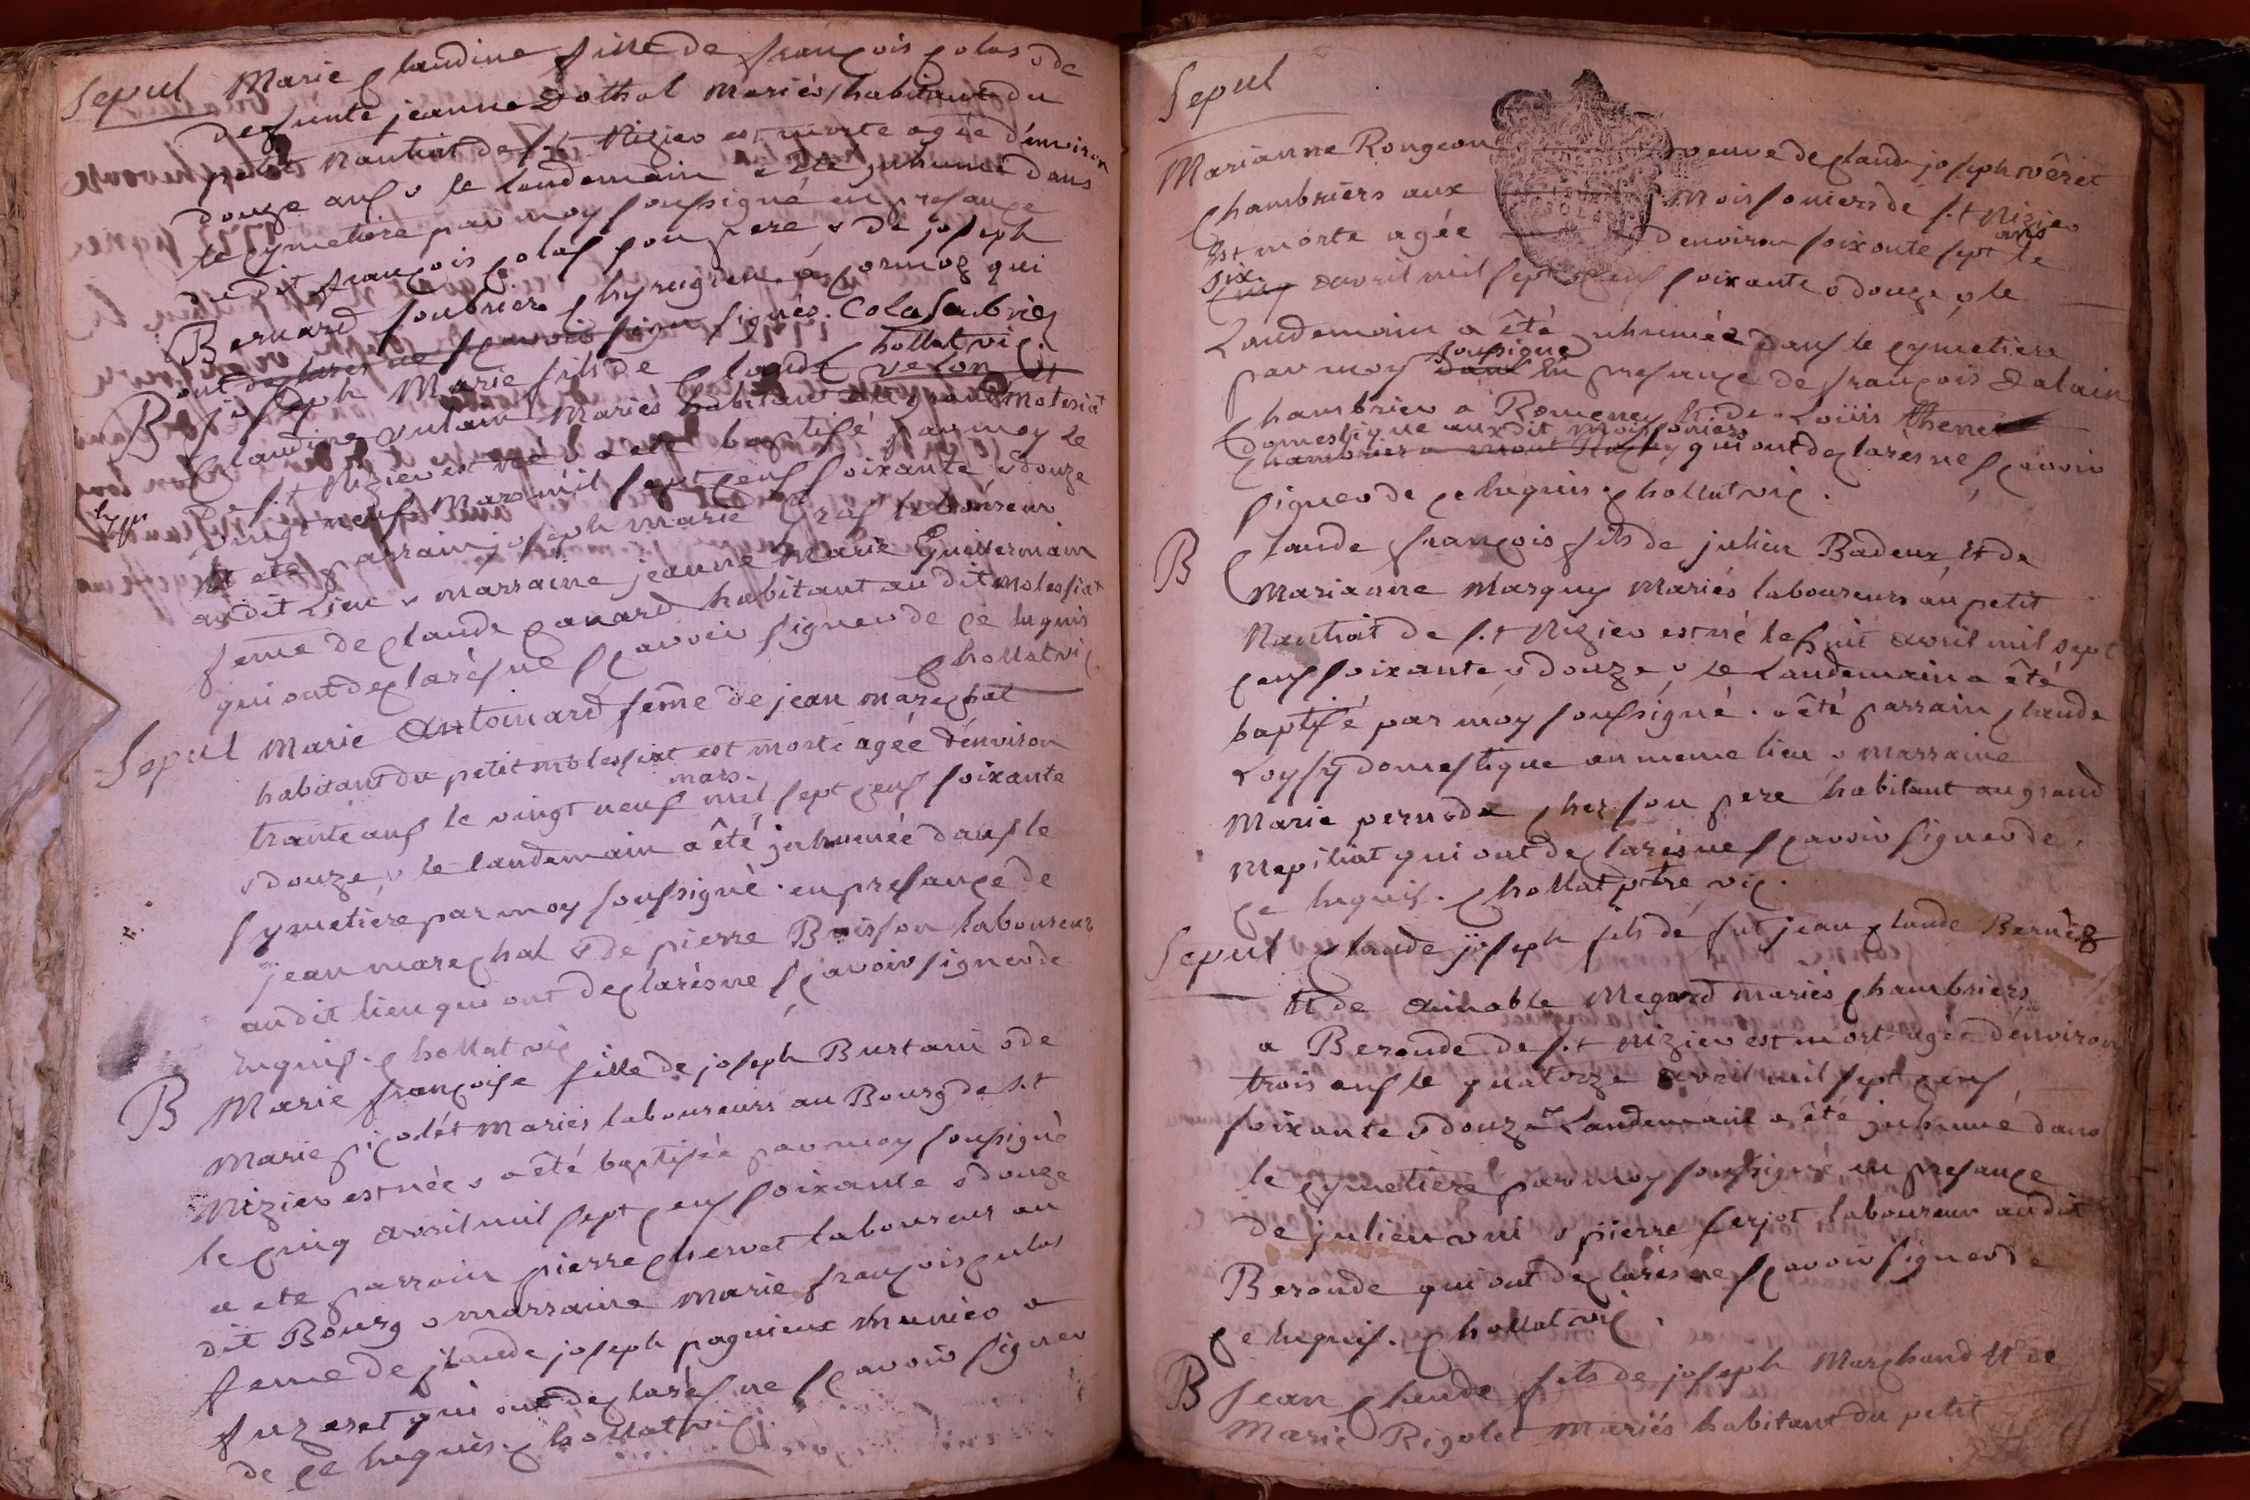 Sepul Marie Claudine fille de françois Colas & de
defunte jeanne Dothal Mariés habitant du
petit Nantoit de St Nizier est morte agée d'environ
douze ans & le landemain a été inhumée dans
le cymetiere par moy soussigné en presance
du dit françois Colas son pere & de joseph
Bernard soubriez chyrugien à Cormoz qui
ont declarés ne scavoir sign signés. Cola Saubriez
chollat vic.
B joseph Marie fils de Claude Velon Et
Claudine vulain Mariés habitant au grand Molesiat
de St Nizier est né & a été baptisé par moy le
vingt neuf Mars mil sept cens soixante & douze
et été parrain joseph marie Gras laboureur
audit Lieu & marraine jeanne Marie Guillermain
feme de claude Canard habitant audit molessiat
qui ont declarés ne scavoir signer de ce luquis
chollat vic.
Sepul Marie Antoinard feme de jean marechal
habitant du petit molessiat est morte agée d'environ
mars
trante ans le vingt neuf mil sept cens soixante
& douze, & le landemain a été inhumée dans le
symetiere par moy soussigné. en presance de
jean marechal & de pierre Buisson laboureur
audit lieu qui ont declarés ne scavoir signer de
luquis. chollat vic
B Marie françoise fille de joseph Burtain & de
Marie picolét Mariés laboureurs au Bourg de St
Nizier est née & a été baptisée par moy soussigné
le cinq avril mil sept cens soixante & douze
a ete parrain pierre chervet laboureur au
dit Bourg & marraine Marie françois culas
feme de claude joseph pagnieux Munier a
juzeret qui ont declarés ne scavoir signer
de ce luquis. chollat vic
Sepul
Marianne Rongeon veuve de claude joseph vériet
Chambriers aux Moissoniers de St Nizier
ans
Est morte agée d'environ soixante sept le
six
cinq avril mil sept cens soixante & douze & le
Landemain a été inhumée dans le cymetiere
soussigné
par moy dans En presance de françois Dalain
Chambrier a Romeney & de Loüis Thenet
Domestique aux dit moissoniers
Chambrier a mont qui ont declarés ne scavoir
signer de ce luquis chollat vic.
B Claude françois fils de julien Badeux Et de
Marianne Marguy Mariés laboureurs au petit
Nantoit de St Nizier est né le huit avril mil sept
cens soixante & douze & le Landemain a été
baptisé par moy soussigné. a été parrain claude
Loysy domestique au meme lieu & marraine
Marie pernode chez son pere habitant au grand
Mepiliat qui ont declarés ne scavoir signer de
ce luquis. chollat ptre vic.
Sepul Claude joseph fils de fut jean claude Bernéz
Et de Aimable Megard mariés chambriers
a Beronde de St Nizier est mort agée d'environ
trois ans le quatorze avril mil sept cens
soixante & douze Landemain a été inhumé dans
le cymetiere par moy soussigné en presance
de julien vui & pierre ferjot laboureur audit
Beronde qui ont declarés ne scavoir signer de
ce luquis. chollat vic.
B Jean Claude fils de joseph Marchand Et de
Marie Rigolet Mariés habitant du petit